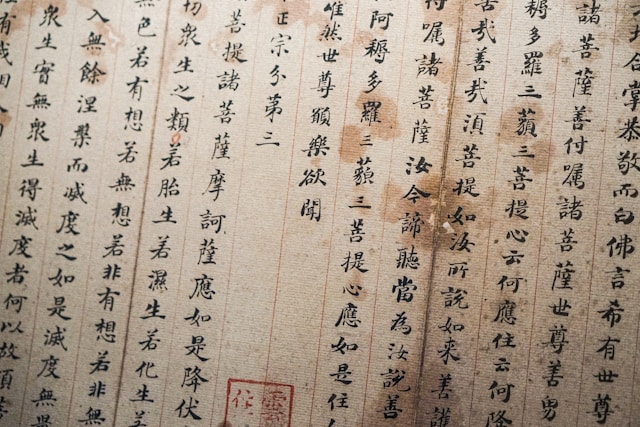 合掌恭敬而白佛言希有世尊
諸菩薩善付囑諸菩薩世尊善男
耨多羅三藐三菩提心云何應住云何降
哉善哉須菩提如汝所說如來善護
付囑諸菩薩汝今諦聽當為汝說善
阿耨多羅三藐三菩提心應如是住
唯然世尊願樂欲聞
正宗分第三
菩提諸菩薩摩訶薩應如是降伏
切衆生之類若胎生若濕生若化生若
無色若有想若無想若非有想若非無
入無餘涅槃而滅度之如是滅度無量
衆生實無衆生得滅度者何以故須菩
有我相人